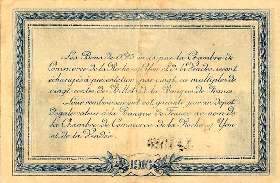 Les Bons de 0f50 émis par la Chambre de
Commerce de la Roche-s-Yon et de la Vendée, sont
échangés à présentation par vingt, ou multiples de
vingt contre des Billets de la Banque de France.
Leur remboursement est garanti par un dépôt
à la Banque de France au nom de
la Chambre de Commerce de la Roche-s-Yon
et de la Vendée